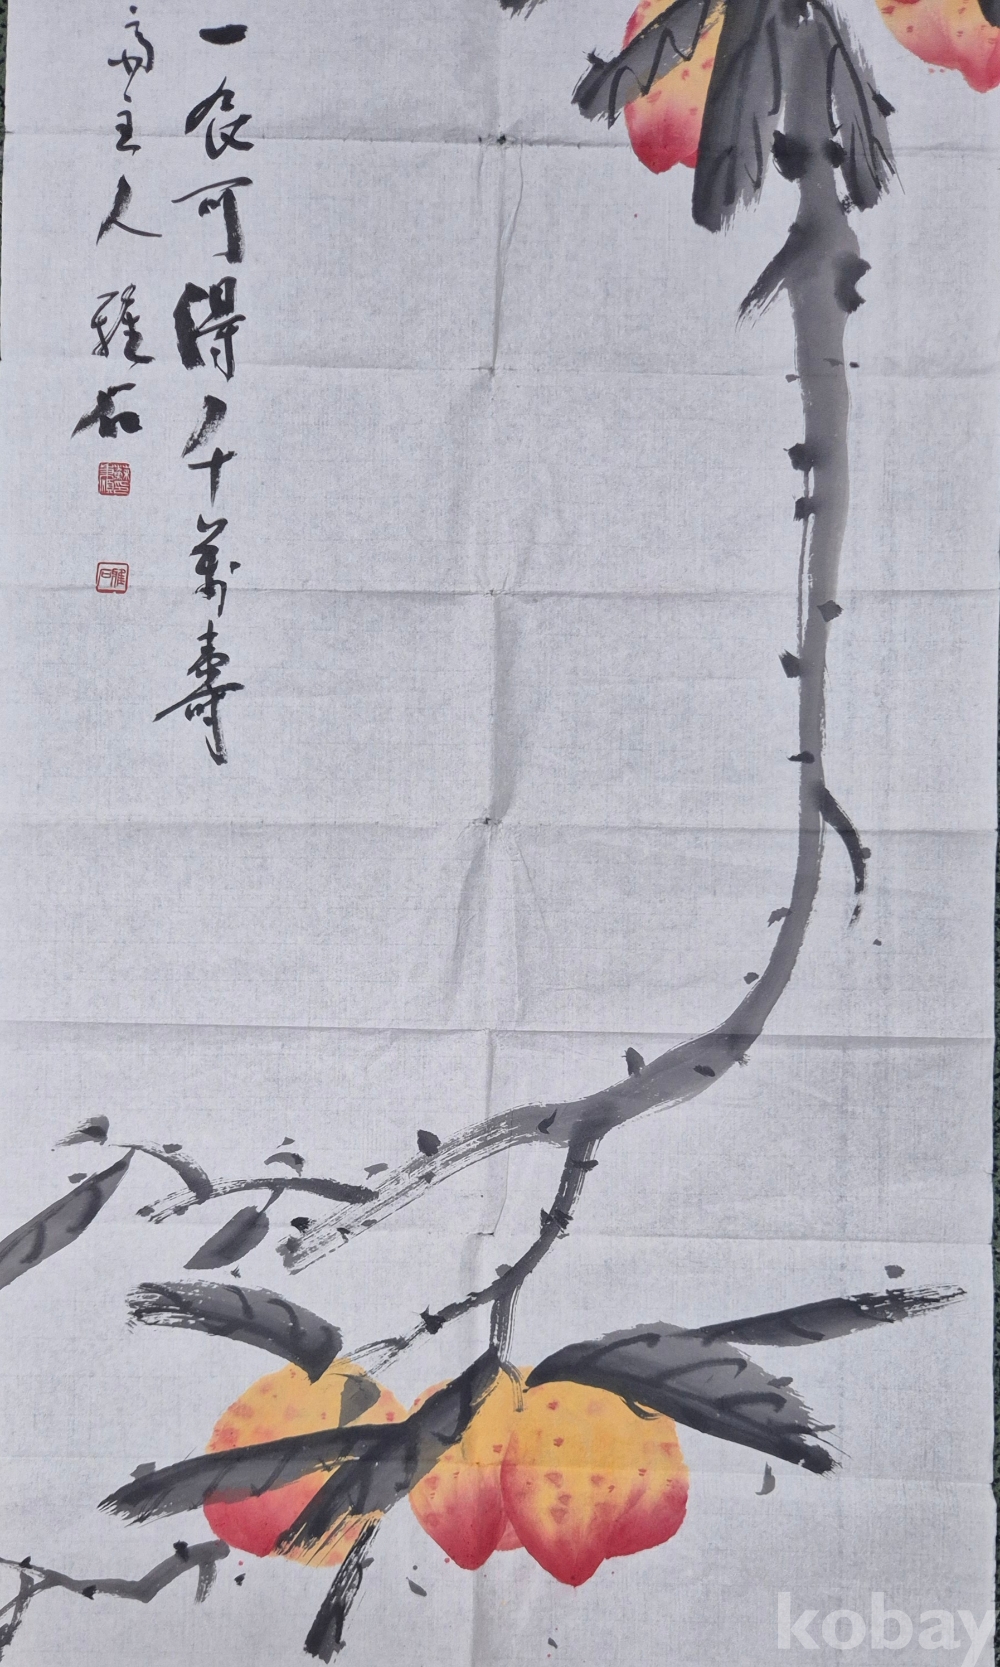 一食可得千萬壽
主人 雅石
kobay